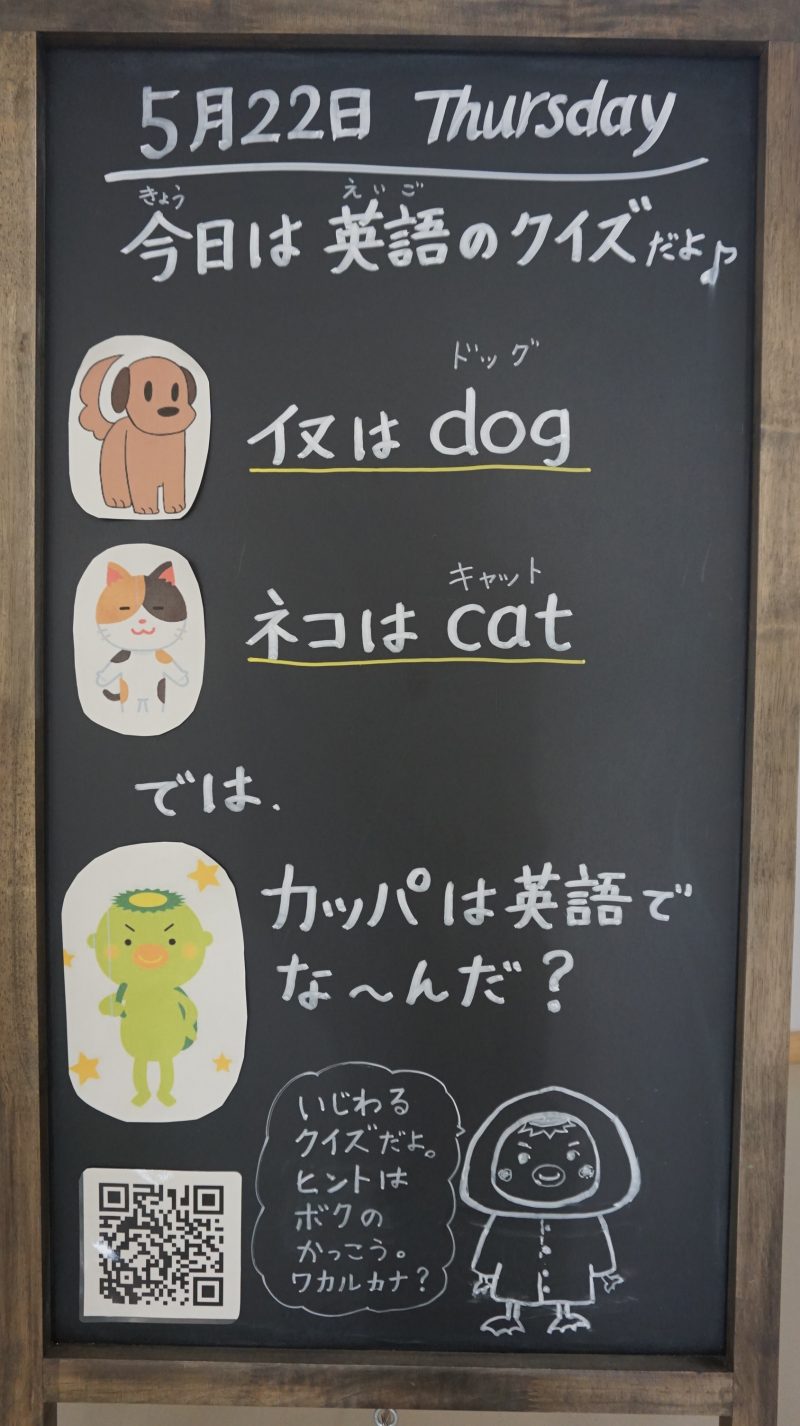 5月22日 Thursday
きょう えいご
今日は英語のクイズだよ♪
ドッグ
イヌは dog
キャット
ネコは cat
では、
カッパは英語で
な〜んだ?
いじわる
クイズだよ。
ヒントは
ボクの
かっこう。
ワカルカナ?